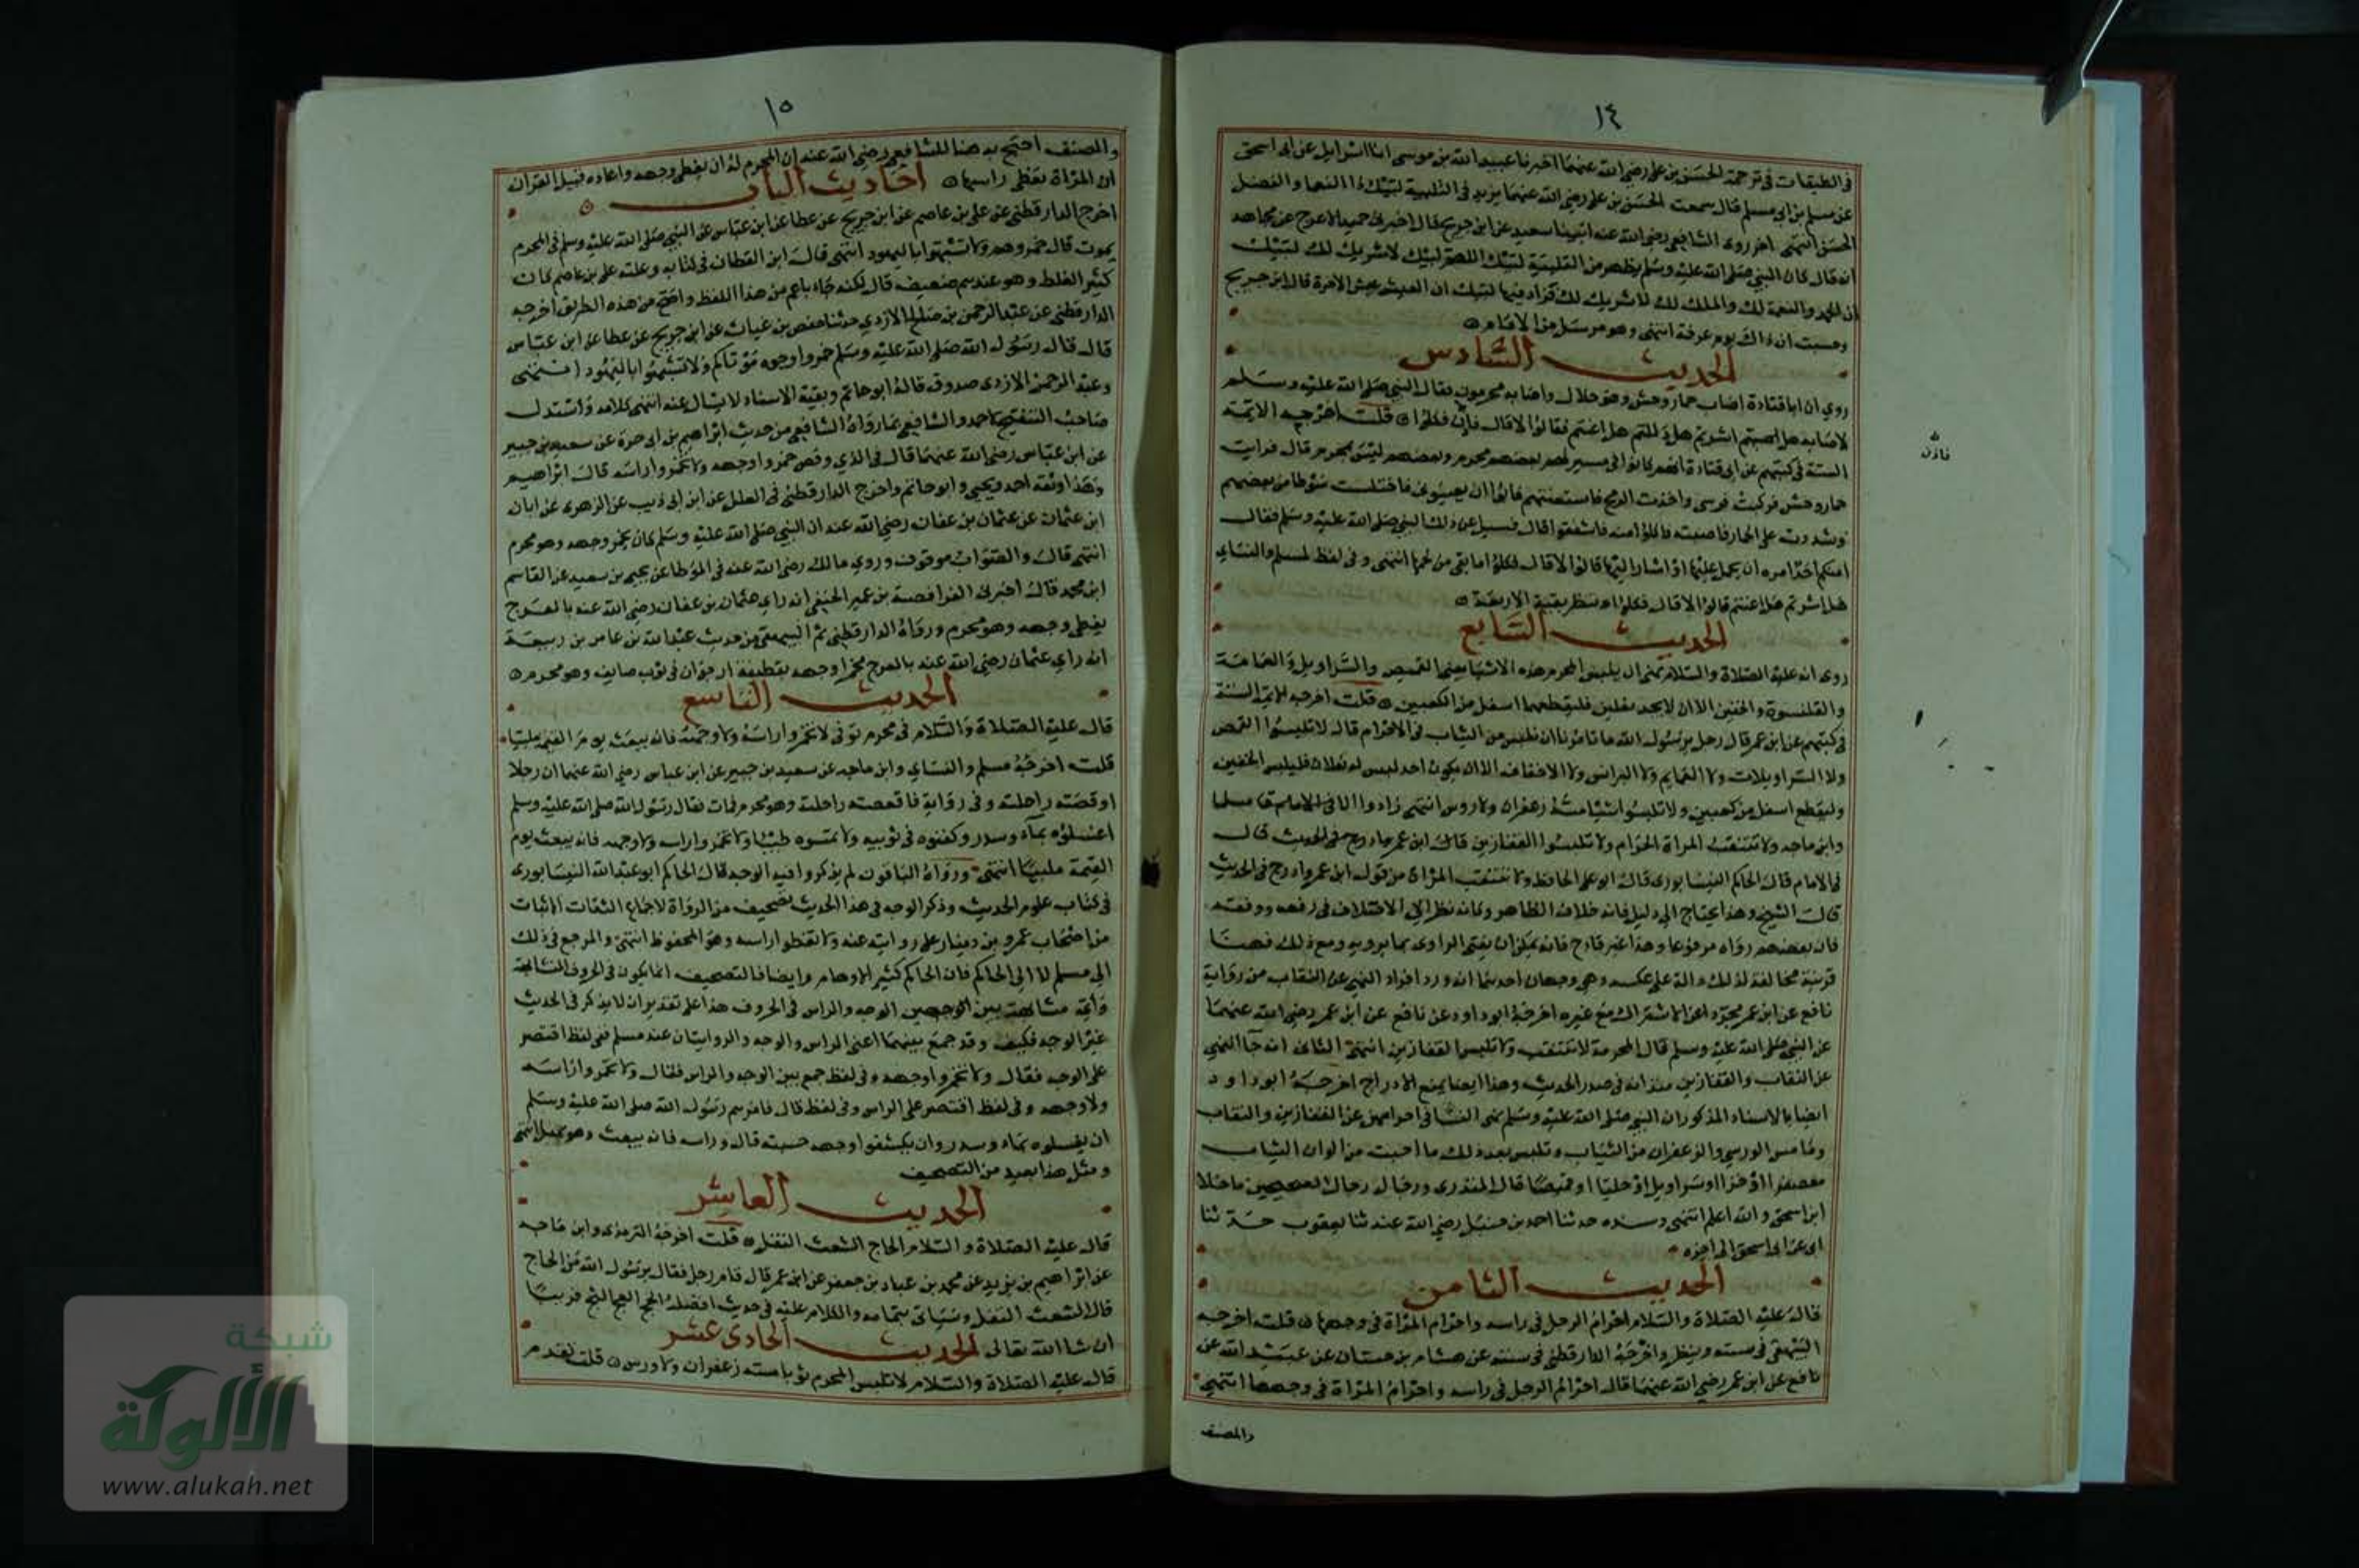 ١٤
في الطبقات في ترجمة الحسن بن علي رضي الله عنهما اخبرنا عبيد الله بن موسى انا اسرائيل عن ابي اسحق
عن مسلم بن ابي مسلم قال سمعت الحسن بن علي رضي الله عنهما يزيد في التلبية لبيك ذا النعما والفضل
الحسن انتهى اخر روى الشافعي رضي الله عنه انبينا سعيد عن ابن جريج قال اخبرني حميد الاعرج عن مجاهد
انه قال كان النبي صلى الله عليه وسلم يظهر من التلبية لبيك اللهم لبيك لا شريك لك لبيك
ان الحمد والنعمة لك والملك لك لا شريك لك فزاد فيها لبيك ان العيش عيش الاخرة قال ابن جريج
وحسبت ان ذاك يوم عرفة انتهى وهو مرسل من الامام
الحديث السادس
روي ان ابا قتادة اصاب حمار وحش وهو حلال واصحابه محرمون فقال النبي صلى الله عليه وسلم
لاصحابه هل اصبتم اشرتم هل دللتم هل اعنتم فقالوا لا قال فاذن فكلوا قلت اخرجه الايمة
فاذن
الستة في كتبهم عن ابي قتادة انهم كانوا في مسير لهم بعضهم محرم وبعضهم ليس بمحرم قال فرايت
حمار وحش فركبت فرسي واخذت الرمح فاستعنتهم فابوا ان يعينوني فاختلست سوطا من بعضهم
وشددت على الحمار فاصبته فاكلوا منه فاشفقوا قال فسيل عن ذلك النبي صلى الله عليه وسلم فقال
امنكم احد امره ان يحمل عليها او اشار اليها قالوا لا قال فكلوا ما بقي من لحمها انتهى وفي لفظ لمسلم والنساي
هل اشرتم هل اعنتم قالوا لا قال فكلوا وينظر بقية الاربعة
الحديث السابع
روى انه عليه الصلاة والسلام نهى ان يلبس المحرم هذه الاشيا يعني القميص والسراويل والعمامة
والقلنسوة والخفين الا ان لا يجد نعلين فليقطعهما اسفل من الكعبين قلت اخرجه الايمة الستة
في كتبهم عن ابن عمر قال رجل يرسول الله ما تامرنا ان نلبس من الثياب في الاحرام قال لا تلبسوا القمص
ولا السراويلات ولا العمايم ولا البرانس ولا الاخفاف الا ان يكون احد ليس له نعلان فليلبس الخفين
وليقطع اسفل من كعبين ولا تلبسوا شيئا مسه زعفران ولا ورس انتهى زادوا الا مسلما
وابن ماجه ولا تنتقب المراة الحرام ولا تلبسوا القفازين قال ابن عمر مدرج في الحديث قال
في الامام قال الحاكم النيسابوري قال ابو علي الحافظ ولا تنتقب المراة من قول ابن عمر وادرج في الحديث
قال الشيخ وهذا يحتاج الى دليل فانه خلاف الظاهر وكانه نظر الى الاختلاف في رفعه ووقفه
فان بعضهم رواه موقوفا وهذا غير قادح فانه يمكن ان يفتي الراوي بما يرويه ومع ذلك فهنا
قرينة مخالفة لذلك دالة على عكسه وهي وجهان احدهما انه ورد افراد النهي عن النقاب من رواية
نافع عن ابن عمر مجردا عن الاشتراك مع غيره اخرجه ابو داود عن نافع عن ابن عمر رضي الله عنهما
عن النبي صلى الله عليه وسلم قال المحرمة لا تنتقب ولا تلبس القفازين انتهى الثاني انه جا النهي
عن النقاب والقفازين مبتدا به في صدر الحديث وهذا ايضا يمنع الادراج اخرجه ابو داود
ايضا بالاسناد المذكور ان النبي صلى الله عليه وسلم نهى النسا في احرامهن عن القفازين والنقاب
وما مس الورس والزعفران من الثياب وتلبس بعد ذلك ما احبت من الوان الثياب
معصفرا او خزا او سراويل او حليا او قميصا قال المنذري ورجاله رجال الصحيحين ما خلا
ابن اسحق والله اعلم انتهى وسنده حدثنا احمد بن حنبل رضي الله عنه ثنا يعقوب حدثنا
ابي عن ابن اسحق الى اخره
الحديث الثامن
قال عليه الصلاة والسلام احرام الرجل في راسه واحرام المراة في وجهها قلت اخرجه
البيهقي في سننه وينظر واخرجه الدارقطني في سننه عن هشام بن حسان عن عبيد الله عن
نافع عن ابن عمر رضي الله عنهما قال احرام الرجل في راسه واحرام المراة في وجهها انتهى
والمصنف
١٥
والمصنف احتج بهذا للشافعي رضي الله عنه ان المحرم له ان يغطي وجهه واعاده قبيل القران
ان المراة تغطي راسها احاديث الباب
اخرج الدارقطني عن علي بن عاصم عن ابن جريج عن عطا عن ابن عباس عن النبي صلى الله عليه وسلم في المحرم
يموت قال خمروهم ولا تشبهوا باليهود انتهى قال ابن القطان في كتابه وعلته علي بن عاصم كان
كثير الغلط وهو عندهم ضعيف قال لكنه جاء باعم من هذا اللفظ واصح من هذه الطريق اخرجه
الدارقطني عن عبد الرحمن بن صالح الازدي حدثنا حفص بن غياث عن ابن جريج عن عطا عن ابن عباس
قال قال رسول الله صلى الله عليه وسلم خمروا وجوه موتاكم ولا تشبهوا باليهود انتهى
وعبد الرحمن الازدي صدوق قاله ابو حاتم وبقية الاسناد لا يسال عنه انتهى كلامه واستدل
صاحب التنقيح لاحمد والشافعي بما رواه الشافعي من حديث ابراهيم بن ابي حرة عن سعيد بن جبير
عن ابن عباس رضي الله عنهما قال في الذي وقص خمروا وجهه ولا تخمروا راسه قال ابراهيم
وهذا وثقه احمد ويحيى وابو حاتم واخرج الدارقطني في العلل عن ابن ابي ذيب عن الزهري عن ابان
ابن عثمان عن عثمان بن عفان رضي الله عنه ان النبي صلى الله عليه وسلم كان يخمر وجهه وهو محرم
انتهى قال والصواب موقوف وروي مالك رضي الله عنه في الموطا عن يحيى بن سعيد عن القاسم
ابن محمد قال اخبرني الفرافصة بن عمير الحنفي انه راى عثمان بن عفان رضي الله عنه بالعرج
يغطي وجهه وهو محرم ورواه الدارقطني ثم البيهقي من حديث عبد الله بن عامر بن ربيعة
انه راى عثمان رضي الله عنه بالعرج مخمرا وجهه بقطيفة ارجوان في يوم صايف وهو محرم
الحديث التاسع
قال عليه الصلاة والسلام في محرم توفي لا تخمروا راسه ولا وجهه فانه يبعث يوم القيمة ملبيا
قلت اخرجه مسلم والنساي وابن ماجه عن سعيد بن جبير عن ابن عباس رضي الله عنهما ان رجلا
اوقصته راحلته وفي رواية فاقعصته راحلته وهو محرم فمات فقال رسول الله صلى الله عليه وسلم
اغسلوه بماء وسدر وكفنوه في ثوبيه ولا تمسوه طيبا ولا تخمروا راسه ولا وجهه فانه يبعث يوم
القيمة ملبيا انتهى ورواه الباقون لم يذكروا فيه الوجه قال الحاكم ابو عبد الله النيسابوري
في كتاب علوم الحديث وذكر الوجه في هذا الحديث تصحيف من الرواة لاجماع الثقات الاثبات
من اصحاب عمرو بن دينار على روايته عنه ولا تغطوا راسه وهو المحفوظ انتهى والمرجع في ذلك
الى مسلم لا الى الحاكم فان الحاكم كثير الاوهام وايضا فالتصحيف انما يكون في الحروف المتشابهة
واية مشابهة بين الوجهين الوجه والراس في الحروف هذا على تقدير ان لا يذكر في الحديث
غير الوجه فكيف وقد جمع بينهما اعني الراس والوجه والروايتان عند مسلم ففي لفظ اقتصر
على الوجه فقال ولا تخمروا وجهه وفي لفظ جمع بين الوجه والراس فقال ولا تخمروا راسه
ولا وجهه وفي لفظ اقتصر على الراس وفي لفظ قال فامرهم رسول الله صلى الله عليه وسلم
ان يغسلوه بماء وسدر وان يكشفوا وجهه حسبته قال وراسه فانه يبعث وهو يهل انتهى
ومثل هذا بعيد من التصحيف
الحديث العاشر
قال عليه الصلاة والسلام الحاج الشعث التفل قلت اخرجه الترمذي وابن ماجه
عن ابراهيم بن يزيد عن محمد بن عباد بن جعفر عن ابن عمر قال قام رجل فقال يرسول الله من الحاج
قال الشعث التفل وسياتي بتمامه والكلام عليه في حديث افضل الحج العج الثج قريبا
ان شا الله تعالى الحديث الحادي عشر
قال عليه الصلاة والسلام لا تلبس المحرم ثوبا مسه زعفران ولا ورس قلت تقدم
شبكة
الألوكة
www.alukah.net